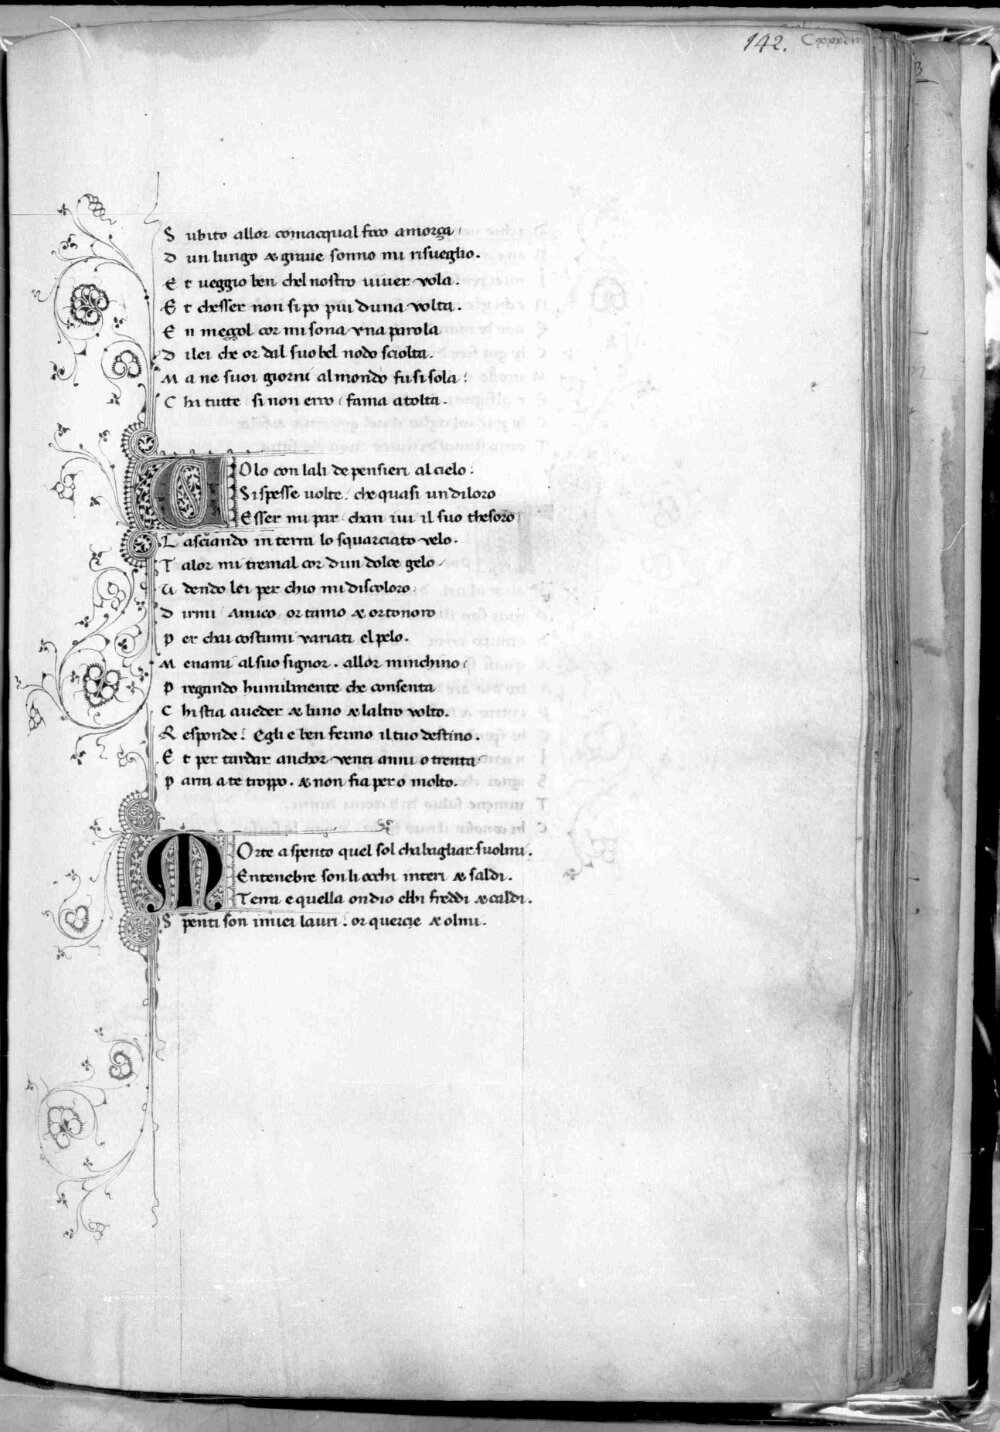 142.
S ubito allor comacqual foco amorza
D un lungo & graue sonno mi risueglio.
E t ueggio ben chel nostro uiuer vola.
E t chesser non si po piu duna volta.
E n megol cor mi sona vna parola
D i lei che or dal suo bel nodo sciolta.
M a ne suoi giorni al mondo fu si sola:
C hi tutte si non erro fama a tolta.
VOlo con lali de pensieri al cielo:
Si spesse uolte. che quasi un di loro
Esser mi par chan iui il suo thesoro
L asciando in terra lo squarciato velo.
T alor mi tremal cor dun dolce gelo
U dendo lei per chio mi discoloro
D irmi Amico or tamo & or tonoro
P er chai costumi variati el pelo.
M enami al suo signor. allor minchino
P regando humilmente che consenta
C hi stia aueder & luno & laltro volto.
R esponde: Egli e ben fermo il tuo destino.
E t per tardar anchor venti anni o trenta
P arra a te troppo. & non fia pero molto.
MOrte a spento quel sol chabagliar suolmi.
Entenebre son li occhi interi & saldi.
Terra e quella ondio ebbi freddi & caldi.
S penti son i miei lauri. or quercie & olmi.